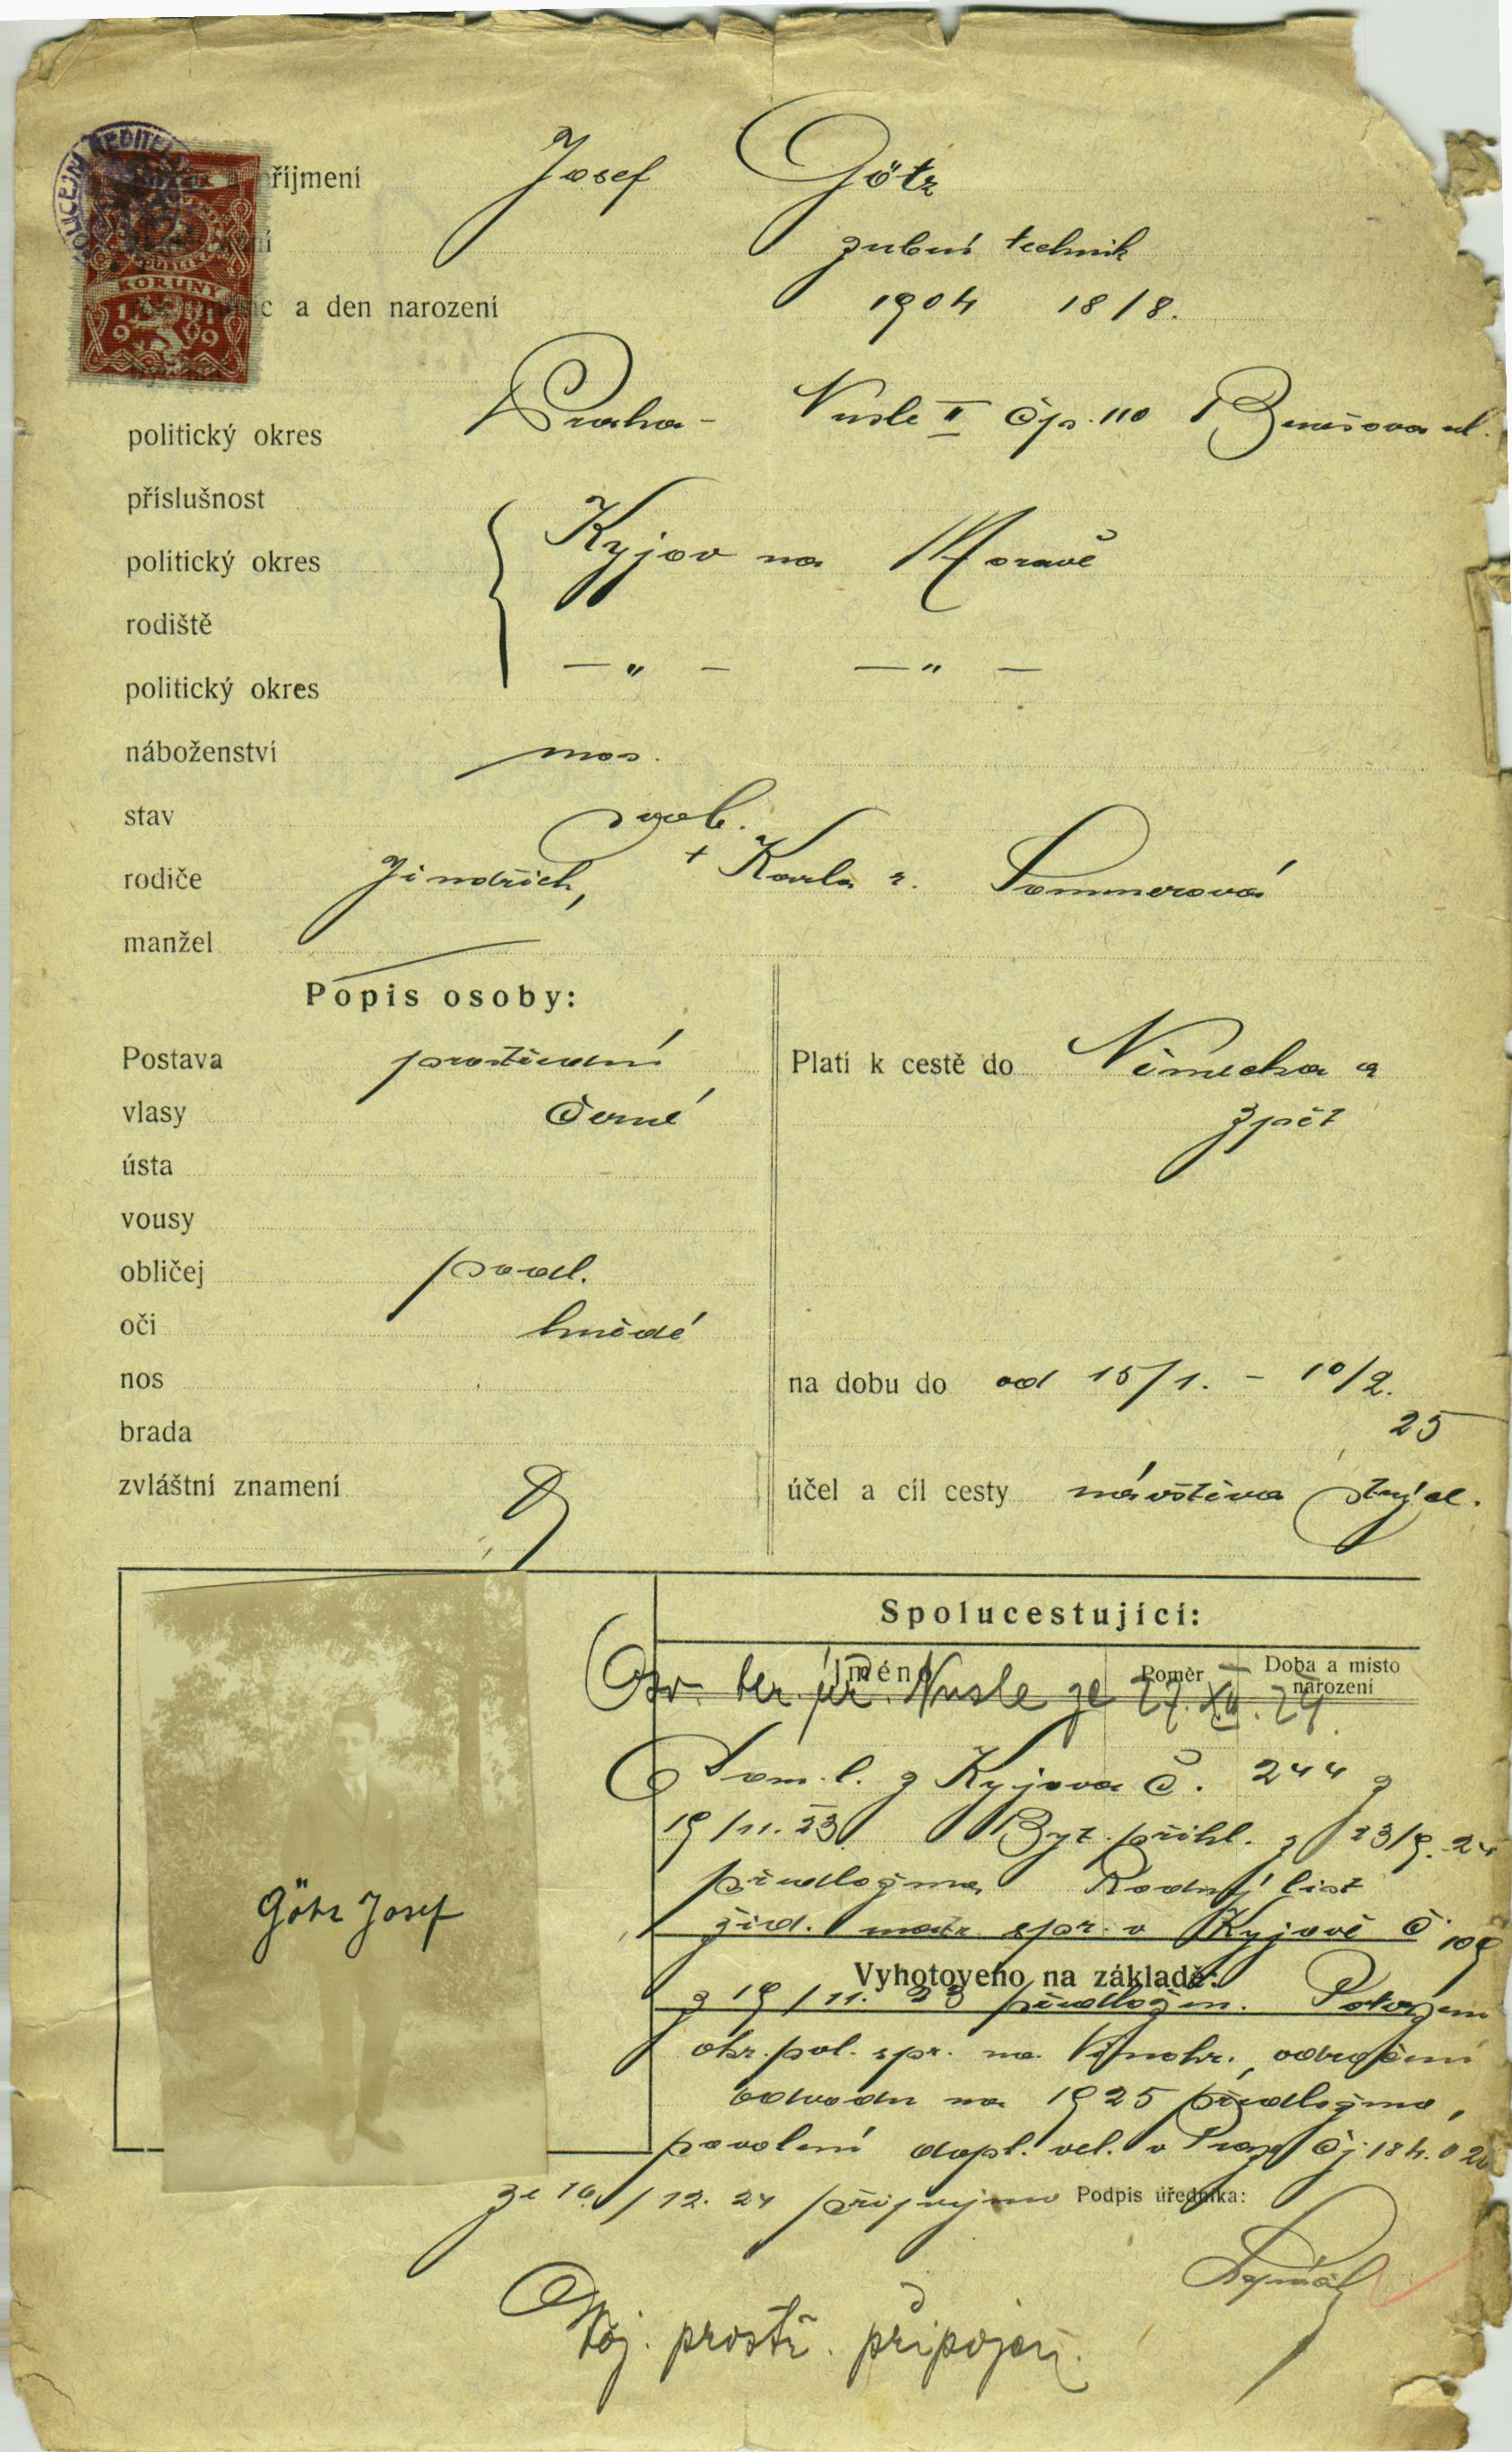 POLICEJNÍ ŘEDITEL
a příjmení Josef Götz
zubní technik
KORUNY
1919
a den narození 1904 18/8.
politický okres Praha - Nusle II čp. 110 Benešova ul.
příslušnost
politický okres Kyjov na Moravě
rodiště
politický okres — " — — " —
náboženství mos.
stav svob.
rodiče Jindřich, + Karla r. Sommerová
manžel
Popis osoby:
Postava prostřední
Platí k cestě do Německa a
vlasy černé
zpět
ústa
vousy
obličej podl.
oči hnědé
nos
na dobu do od 15/1. - 10/2.
25
brada
zvláštní znamení
účel a cíl cesty návštěva strýce.
Spolucestující:
Jméno Poměr Doba a místo narození
Osv. ber. úř. Nusle ze 27.XII.24.
Dom. l. z Kyjova č. 244 z
19/11. 23. Byt. přihl. z 23/9. 24
předložena Rodný list
žid. matr. spr. v Kyjově č. 109
Vyhotoveno na základě:
z 19/11. 23 předložen. Potvrzení
okr. pol. spr. na Vinohr. odročení
odvodu na 1925 předloženo,
povolení dopl. vel. v Praze čj. 184.020
ze 16/12. 24 připojeno
Podpis úředníka:
Voj. prostř. připojen.
Götz Josef